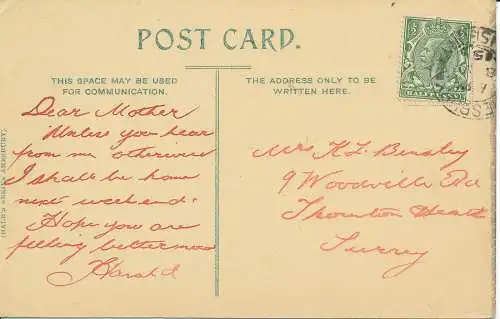 POST CARD.
THIS SPACE MAY BE USED
FOR COMMUNICATION.
THE ADDRESS ONLY TO BE
WRITTEN HERE.
Dear Mother
Unless you hear
from me otherwise
I shall be home
next week end.
Hope you are
feeling better now
Harold
Mrs K. L. Bensley
9 Woodville Rd
Thornton Heath
Surrey
HALFPENNY